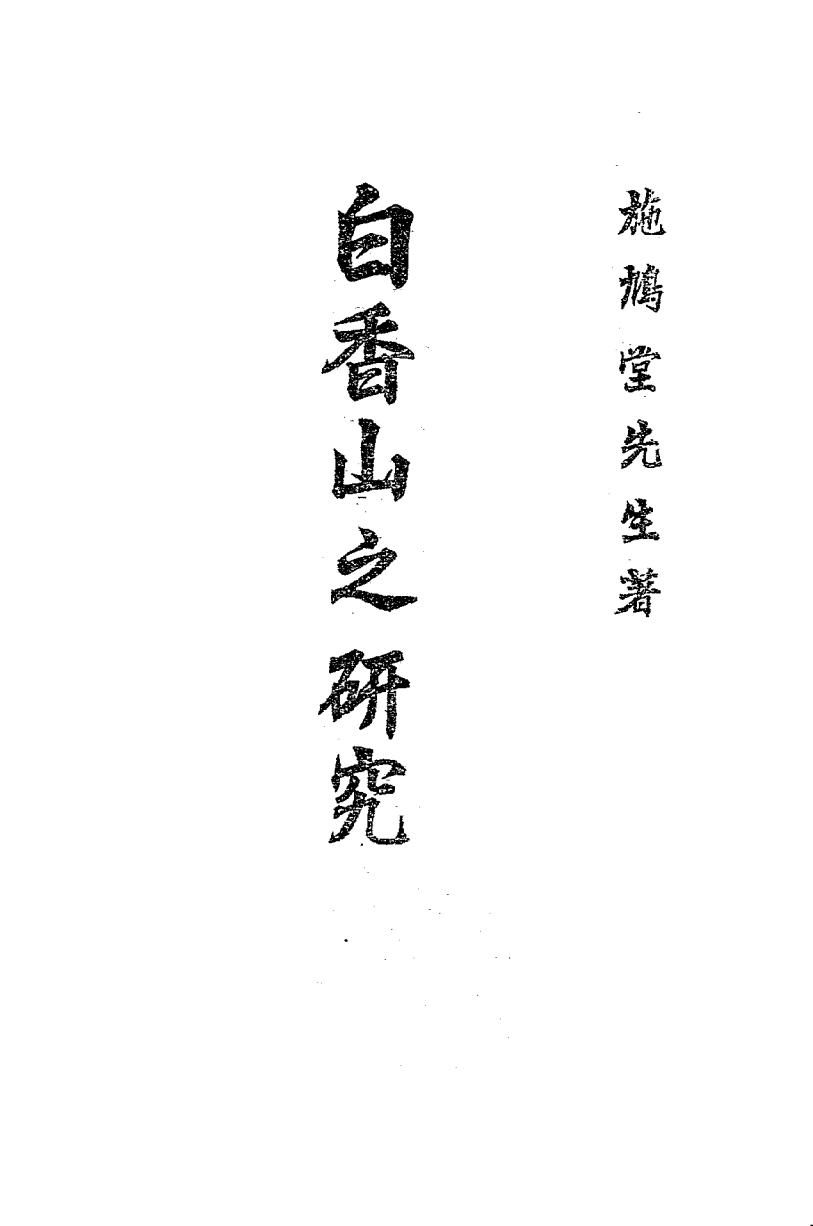 施鳩堂先生著
白香山之研究